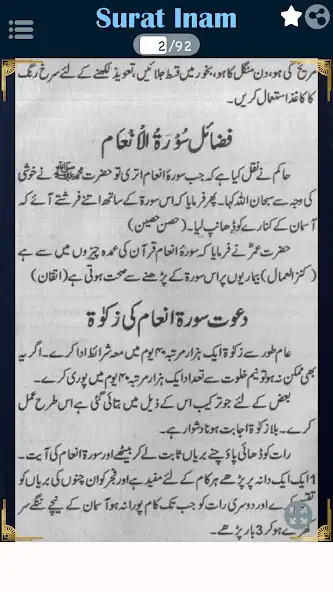 Surat Inam
2/92
مریخ کی ہو، دن منگل کا ہو، بخور میں قسط جلائیں، تعویذ لکھنے کے لئے سرخ رنگ
کا کاغذ استعمال کریں۔
فضائل سُوْرَۃُ الْاَنْعَام
حاکم نے نقل کیا ہے کہ جب سورۃ انعام اتری تو حضرت محمد ﷺ نے خوشی
کی وجہ سے سبحان اللہ کہا۔ پھر فرمایا کہ اس سورۃ کے ساتھ اتنے فرشتے آئے کہ
آسمان کے کنارے کو ڈھانپ لیا۔ (حصن حصین)
حضرت عمرؓ نے فرمایا کہ سورۃ انعام قرآن کی عمدہ چیزوں میں سے ہے
(کنزالعمال) بیماریوں پر اس سورۃ کے پڑھنے سے صحت ہوتی ہے (اتقان)
دعوت سورۃ انعام کی زکوٰۃ
عام طور سے زکوٰۃ ایک ہزار مرتبہ ۴۰ یوم میں معہ شرائط ادا کرے۔ اگر یہ
بھی ممکن نہ ہو تو نیم خلوت سے تعداد ایک ہزار مرتبہ ۴۰ یوم میں پوری کرے۔
بعض کے لئے جو ترکیب اس کے ذیل میں بتائی گئی ہے اس طرح عمل
کرے۔ بلا زکوٰۃ اجابت ہونا دشوار ہے۔
رات کو ڈھائی پاؤ چنے بریاں ثابت لے کر بیٹھے اور سورۃ انعام کی آیت۔
1 ایک ایک دانہ پر پڑھے ہر کام کے لئے مفید ہے اور فجر کو ان چنوں کی بریاں کو
کرے اور دوسری رات کو جب تک کام پورا نہ ہو آسمان کے نیچے ننگے سر
کھڑے ہو کر 3 بار پڑھے۔